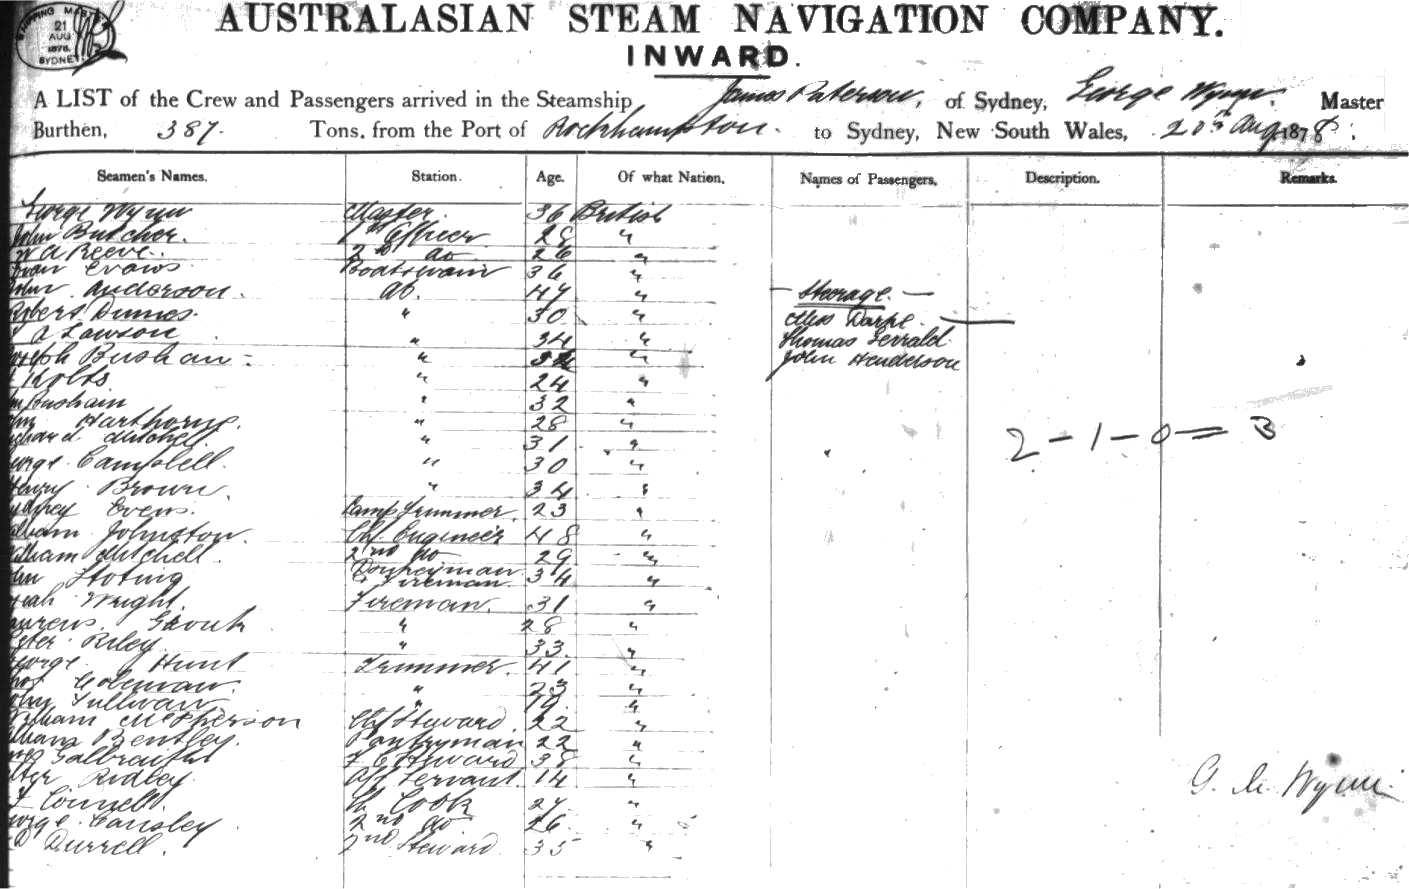 SHIPPING MASTER
21
AUG
1878.
SYDNEY
AUSTRALASIAN STEAM NAVIGATION COMPANY.
INWARD.
A LIST of the Crew and Passengers arrived in the Steamship James Paterson, of Sydney, George Wynn. Master
Burthen, 387. Tons, from the Port of Rockhampton. to Sydney, New South Wales, 20th Aug 1878.
Seamen's Names. Station. Age. Of what Nation. Names of Passengers. Description. Remarks.
George Wynn Master. 36 British
John Butcher. 1st Officer 28 "
W A Reeve. 2nd do 26 "
Evan Evans Boatswain 36 "
John Anderson. ab. 47 " — Steerage. —
Robert Dumes. " 30 " Miss Darke.
A Lawson " 34 " Thomas Serrald.
Joseph Busham " " John Henderson
Kolts " 24 "
Busham " 32 "
Harthorne. " 28 "
Richard Mitchell " 31 " 2 - 1 - 0 = 3
George Campbell. " 30 "
Henry Brown. " 34 "
Evens. Lamp Trimmer. 23 "
William Johnston. Chf. Engineer 48 "
William Mitchell. 2nd do 29 "
John Stoting Donkeyman & Fireman. 34 "
Wright. Fireman. 31 "
" 28 "
Peter Riley. " 33. "
George Hunt Trimmer. 41 "
Coleman. " 23 "
John Sullivan " 19. "
William McPherson Chf Steward. 22 "
William Bentley. Pantryman 22 "
James Galbraith F C Steward 38 "
Ridley Aft Servant. 14 " G. Wynn.
Connell. Ch. Cook 27 "
George Cansley 2nd do 26. "
D Durrell. 2nd Steward. 35 "